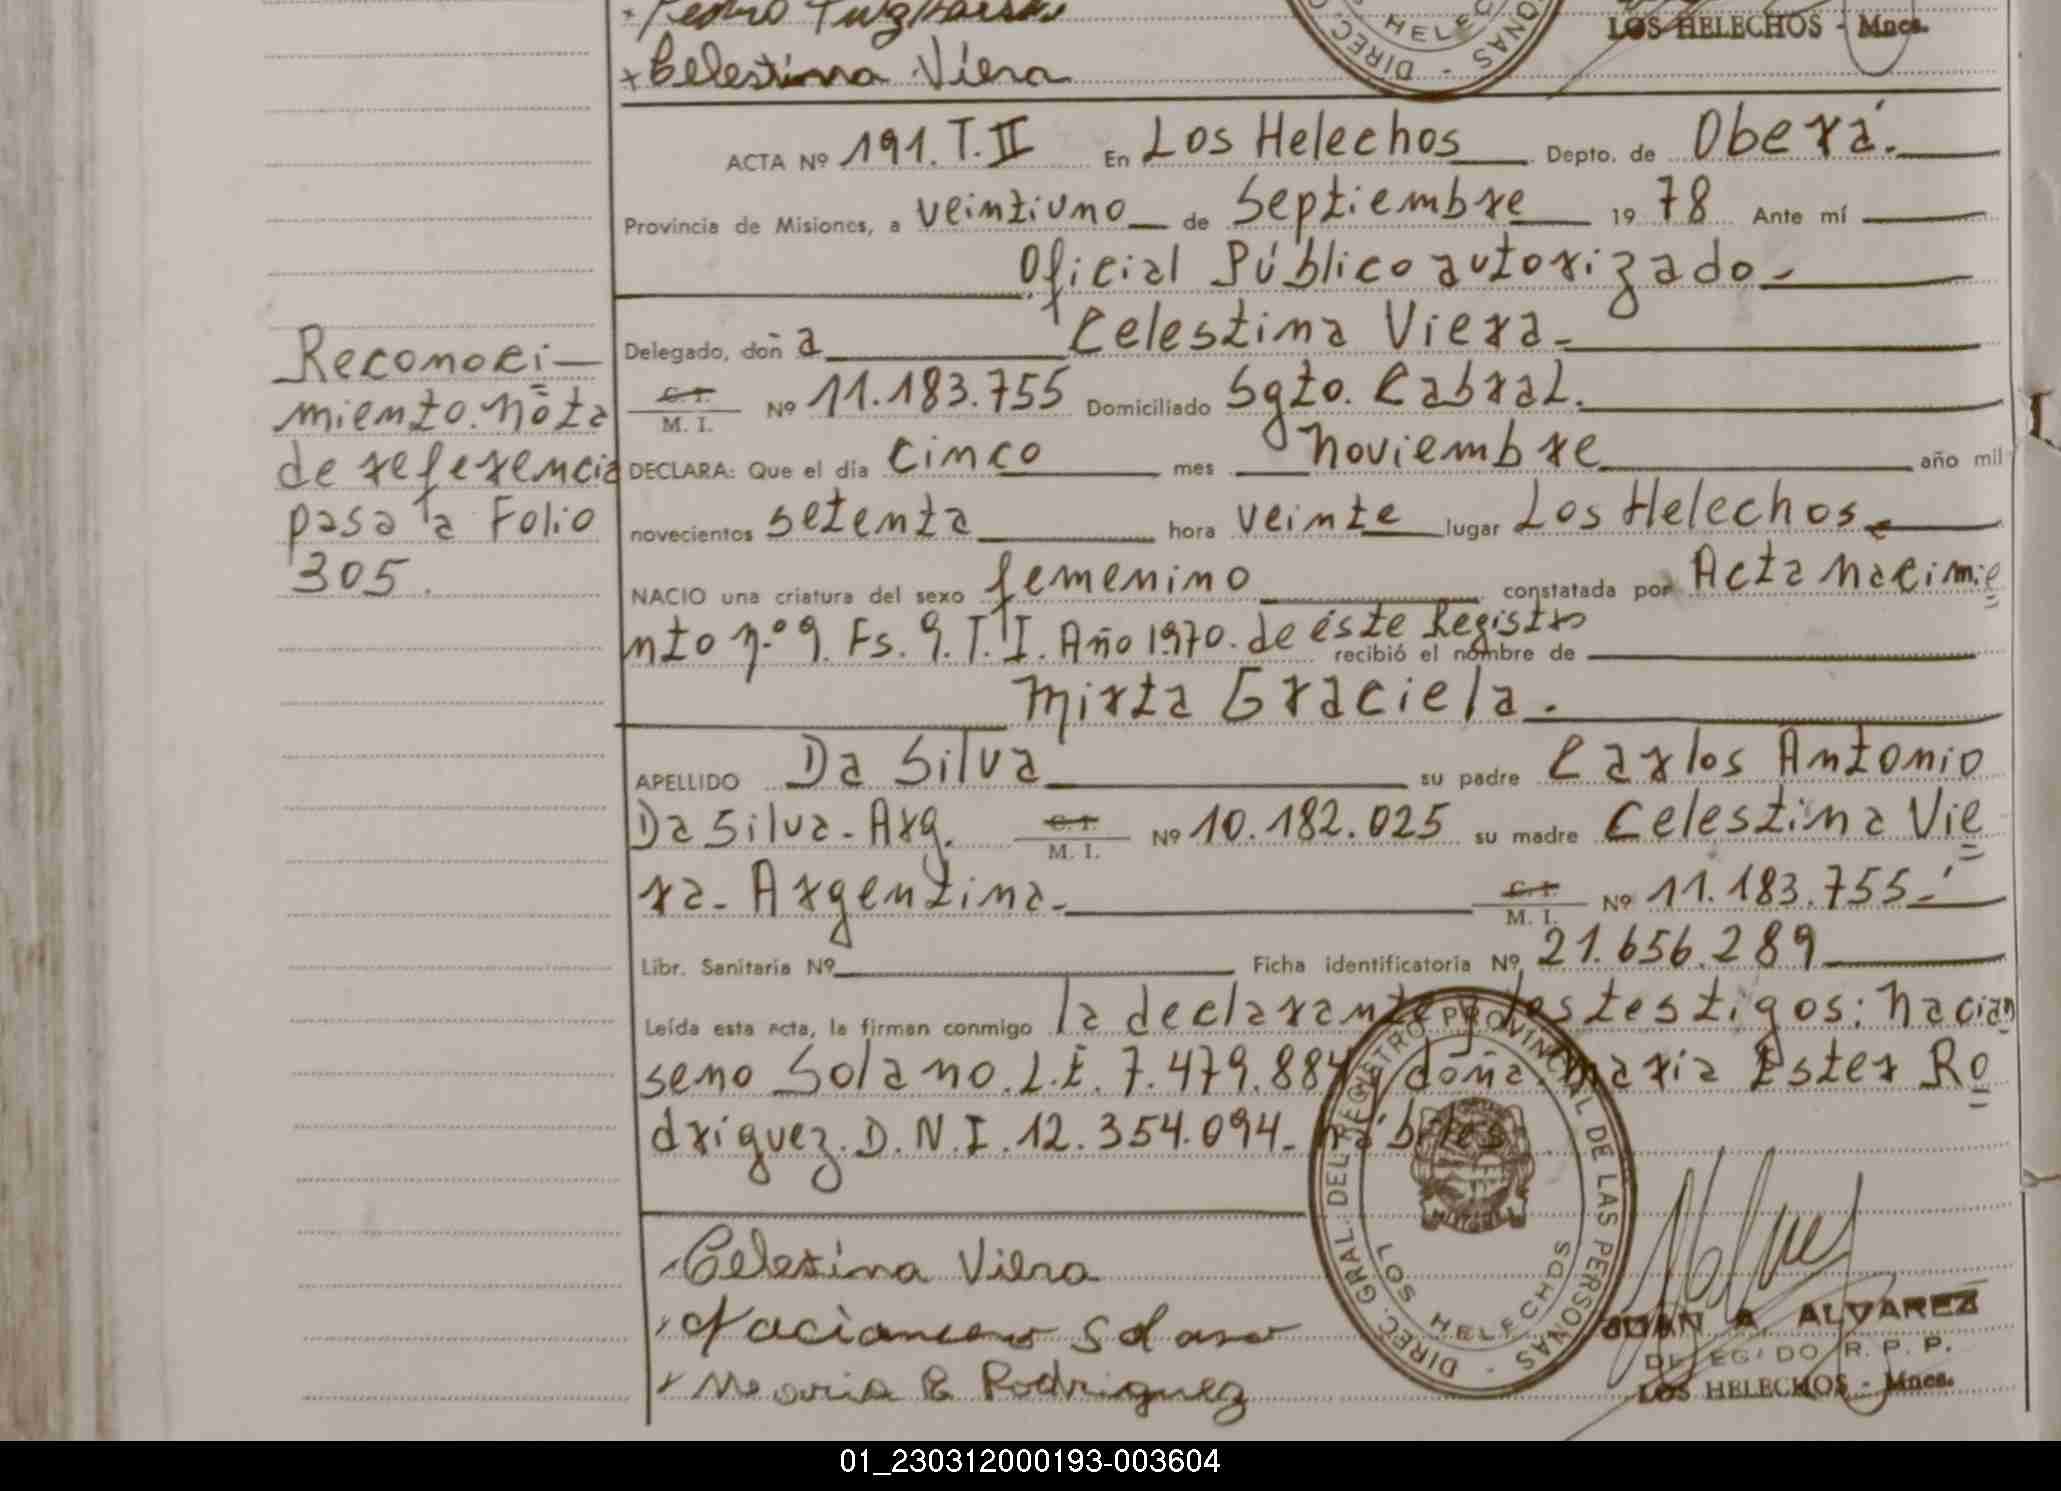 + Pedro
LOS HELECHOS - Mnes.
+ Celestina Viera
ACTA Nº 191. T. II En Los Helechos Depto. de Oberá.
Provincia de Misiones, a veintiuno de Septiembre 19 78 Ante mí
Oficial Público autorizado -
Delegado, doñ a Celestina Viera -
C. I. M. I. Nº 11.183.755 Domiciliado Sgto. Cabral.
DECLARA: Que el día cinco mes noviembre año mil
novecientos setenta hora veinte lugar Los Helechos
NACIO una criatura del sexo femenino constatada por Acta nacimie
nto n.º 9. Fs. 9. T. I. Año 1970. de éste Registro recibió el nombre de
Mirta Graciela.
APELLIDO Da Silva su padre Carlos Antonio
Da Silva - Arg. C. I. M. I. Nº 10.182.025 su madre Celestina Vie
ra - Argentina - C. I. M. I. Nº 11.183.755 -
Libr. Sanitaria Nº Ficha identificatoria Nº 21.656.289
Leída esta acta, la firman conmigo la declarante y los testigos: Nacian
seno Solano. L.E. 7.479.884 y doña Maria Ester Ro
driguez. D.N.I. 12.354.094 - hábiles.
Reconoci-
miento. nota
de referencia
pasa a Folio
305.
Celestina Viera
Nacianceno Solano
Maria E Rodriguez
DIREC. GRAL. DEL REGISTRO PROVINCIAL DE LAS PERSONAS -
LOS HELECHOS
JUAN A. ALVAREZ
DELEGADO R. P. P.
LOS HELECHOS - Mnes.
01_230312000193-003604